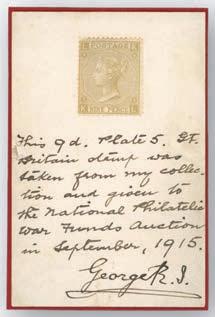 L POSTAGE K
NINE PENCE
K L
This 9d. Plate 5. Gt.
Britain stamp was
taken from my collec-
tion and given to
the National Philatelic
War Funds Auction
in September, 1915.
George R. I.